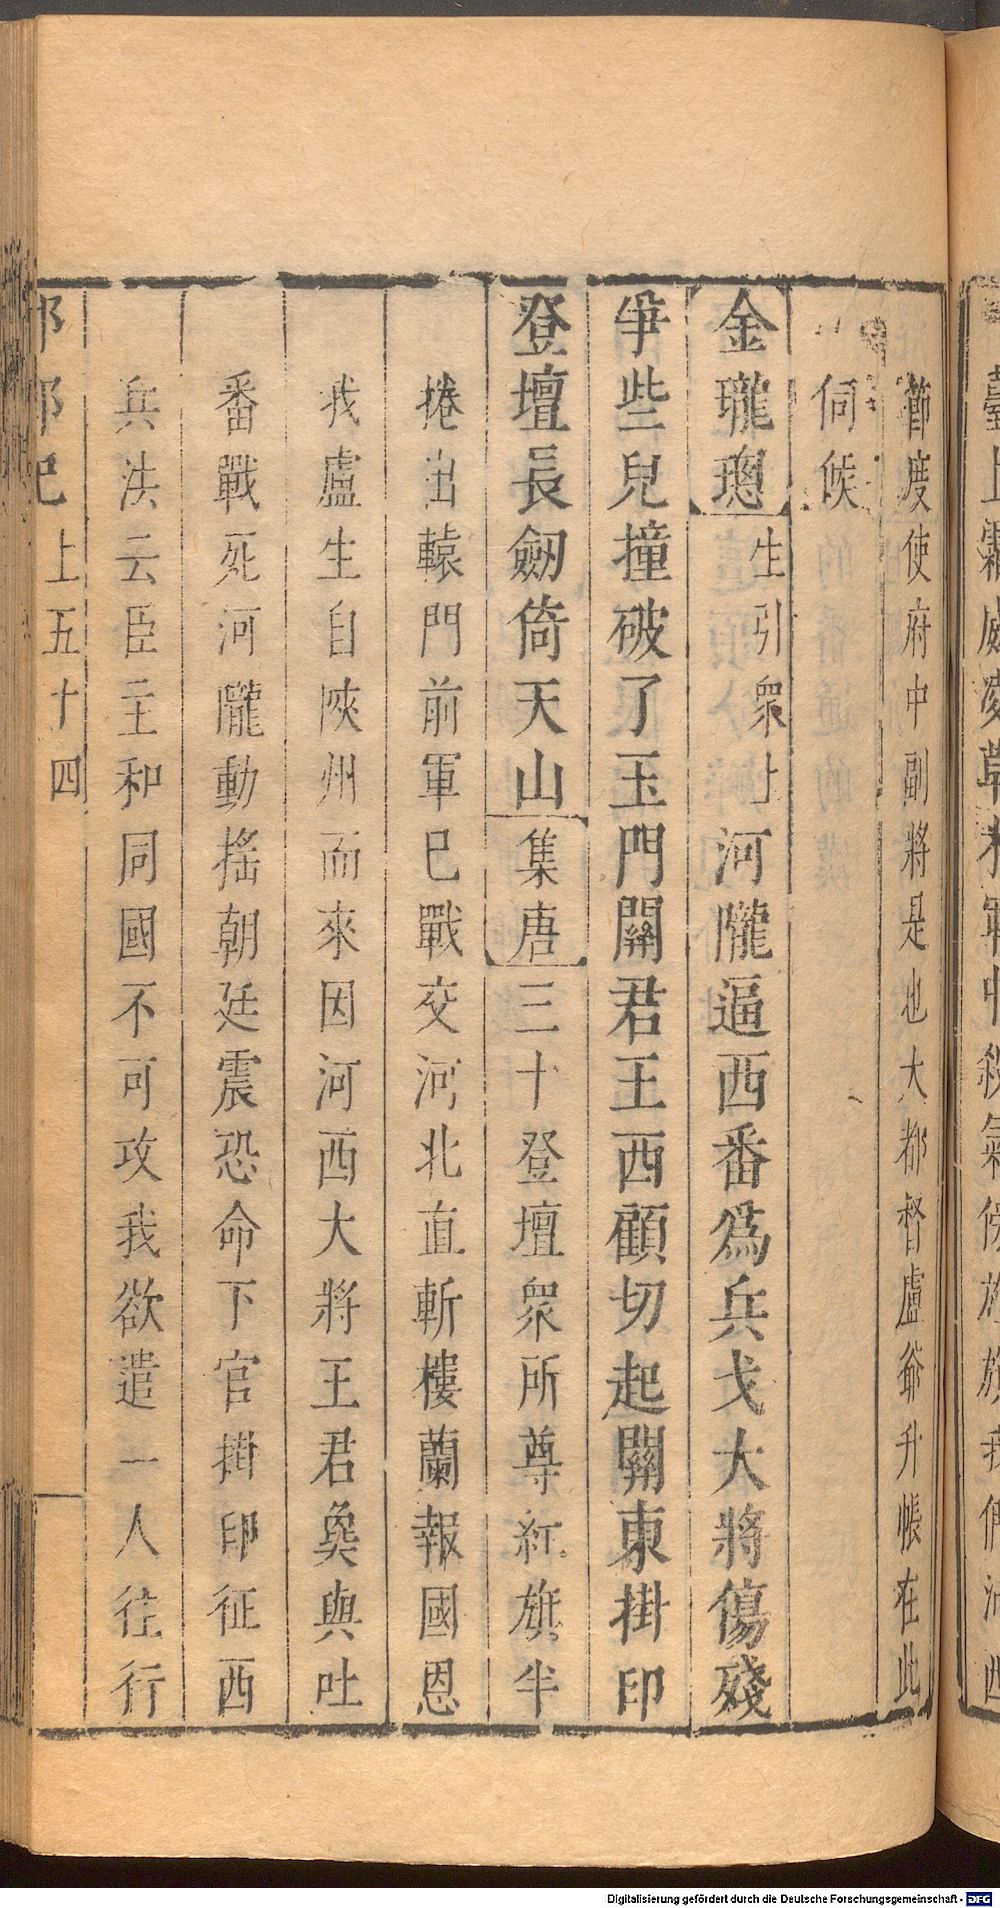 節度使府中副將是也大都督盧爺升帳在此
伺候
金瓏璁生引衆上河隴逼西番爲兵戈大將傷殘
爭些兒撞破了玉門關君王西顧切起關東掛印
登壇長劒倚天山集唐三十登壇衆所尊紅旗半
捲出轅門前軍已戰交河北直斬樓蘭報國恩
我盧生自陜州而來因河西大將王君㚟與吐
番戰死河隴動搖朝廷震恐命下官掛印征西
兵法云臣主和同國不可攻我欲遣一人往行
上五十四
Digitalisierung gefördert durch die Deutsche Forschungsgemeinschaft - DFG